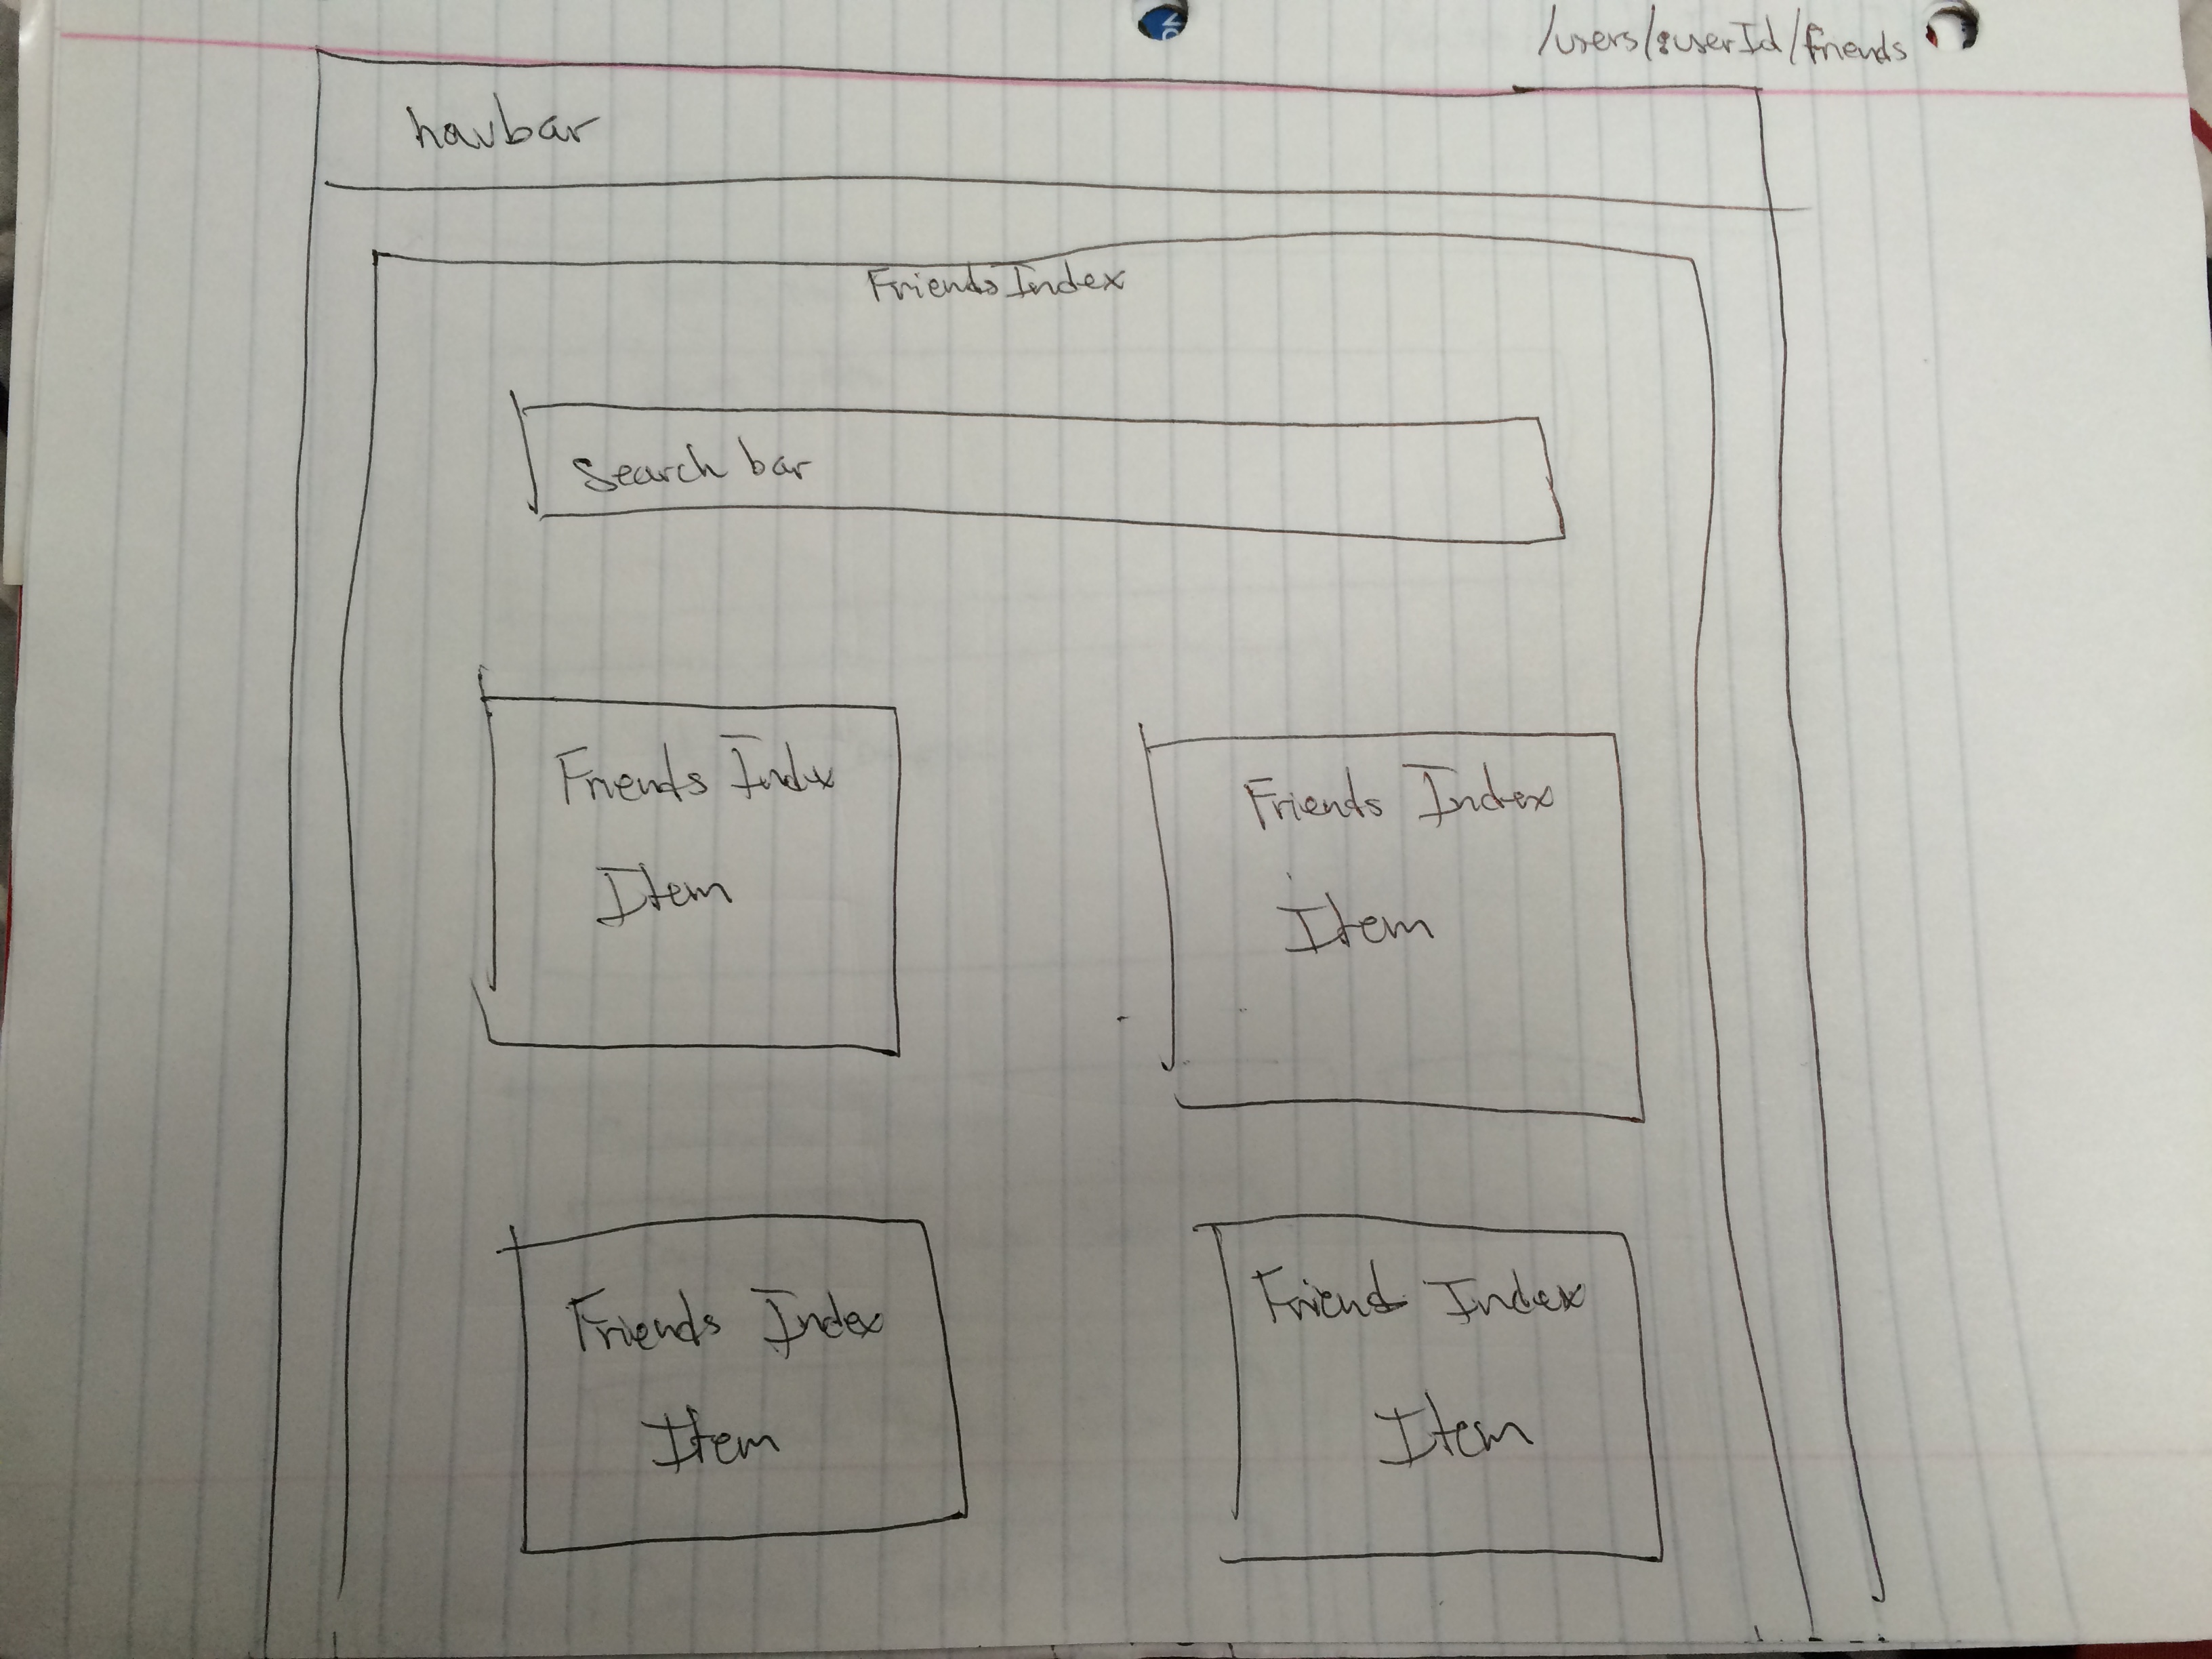 /users/:userId/friends
navbar
FriendsIndex
Search bar
Friends Index
Item
Friends Index
Item
Friends Index
Item
Friend Index
Item